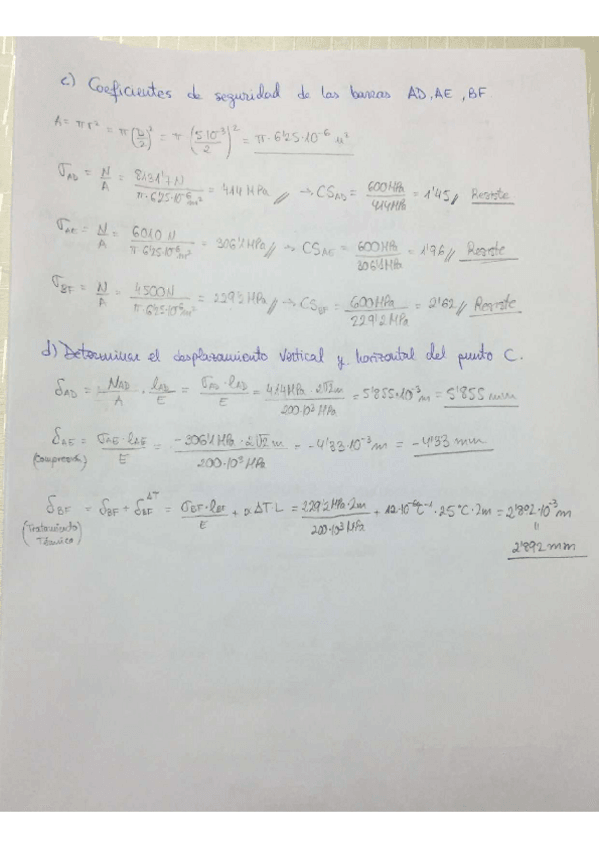 c) Coeficientes de seguridad de las barras AD, AE, BF
A = πr² = π(D/2)² = π(5·10⁻³/2)² = π·6'25·10⁻⁶ m²
σ_AD = N/A = 8131'7 N/π·6'25·10⁻⁶ m² = 414 MPa // → CS_AD = 600 MPa/414 MPa = 1'45 // Resiste
σ_AE = N/A = 6010 N/π·6'25·10⁻⁶ m² = 306'1 MPa // → CS_AE = 600 MPa/306'1 MPa = 1'96 // Resiste
σ_BF = N/A = 4500 N/π·6'25·10⁻⁶ m² = 229'2 MPa // → CS_BF = 600 MPa/229'2 MPa = 2'62 // Resiste
d) Determinar el desplazamiento vertical y horizontal del punto C.
δ_AD = N_AD/A · l_AD/E = σ_AD·l_AD/E = 414 MPa·2√2 m/200·10³ MPa = 5'855·10⁻³ m = 5'855 mm
δ_AE = σ_AE·l_AE/E = -306'1 MPa·2√2 m/200·10³ MPa = -4'33·10⁻³ m = -4'33 mm
(compresión)
δ_BF = δ_BF + δ_BF^ΔT = σ_BF·l_BF/E + α ΔT L = 229'2 MPa·2m/200·10³ MPa + 12·10⁻⁶ ℃⁻¹·25℃·2m = 2'892·10⁻³ m
(Tratamiento
Térmico)
=
2'892 mm